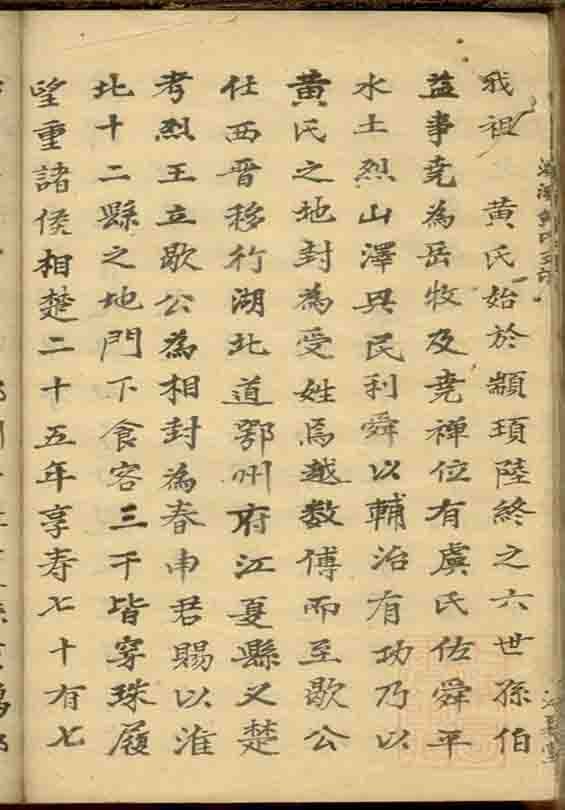 我祖 黄氏始於顓頊陸終之六世孫伯
益事尭為岳牧及尭禅位有虞氏佐舜平
水土烈山澤與民利舜以輔治有功乃以
黄氏之地封為受姓焉越数傳而至歇公
仕西晋移行湖北道鄂州府江夏縣又楚
考烈王立歇公為相封為春申君賜以淮
北十二縣之地門下食客三千皆穿珠履
望重諸侯相楚二十五年享寿七十有七